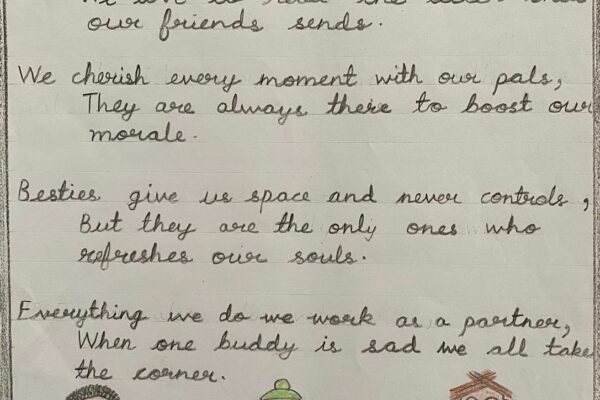 our friends sends.
We cherish every moment with our pals,
They are always there to boost our
morale.
Besties give us space and never controls,
But they are the only ones who
refreshes our souls.
Everything we do we work as a partner,
When one buddy is sad we all take
the corner.